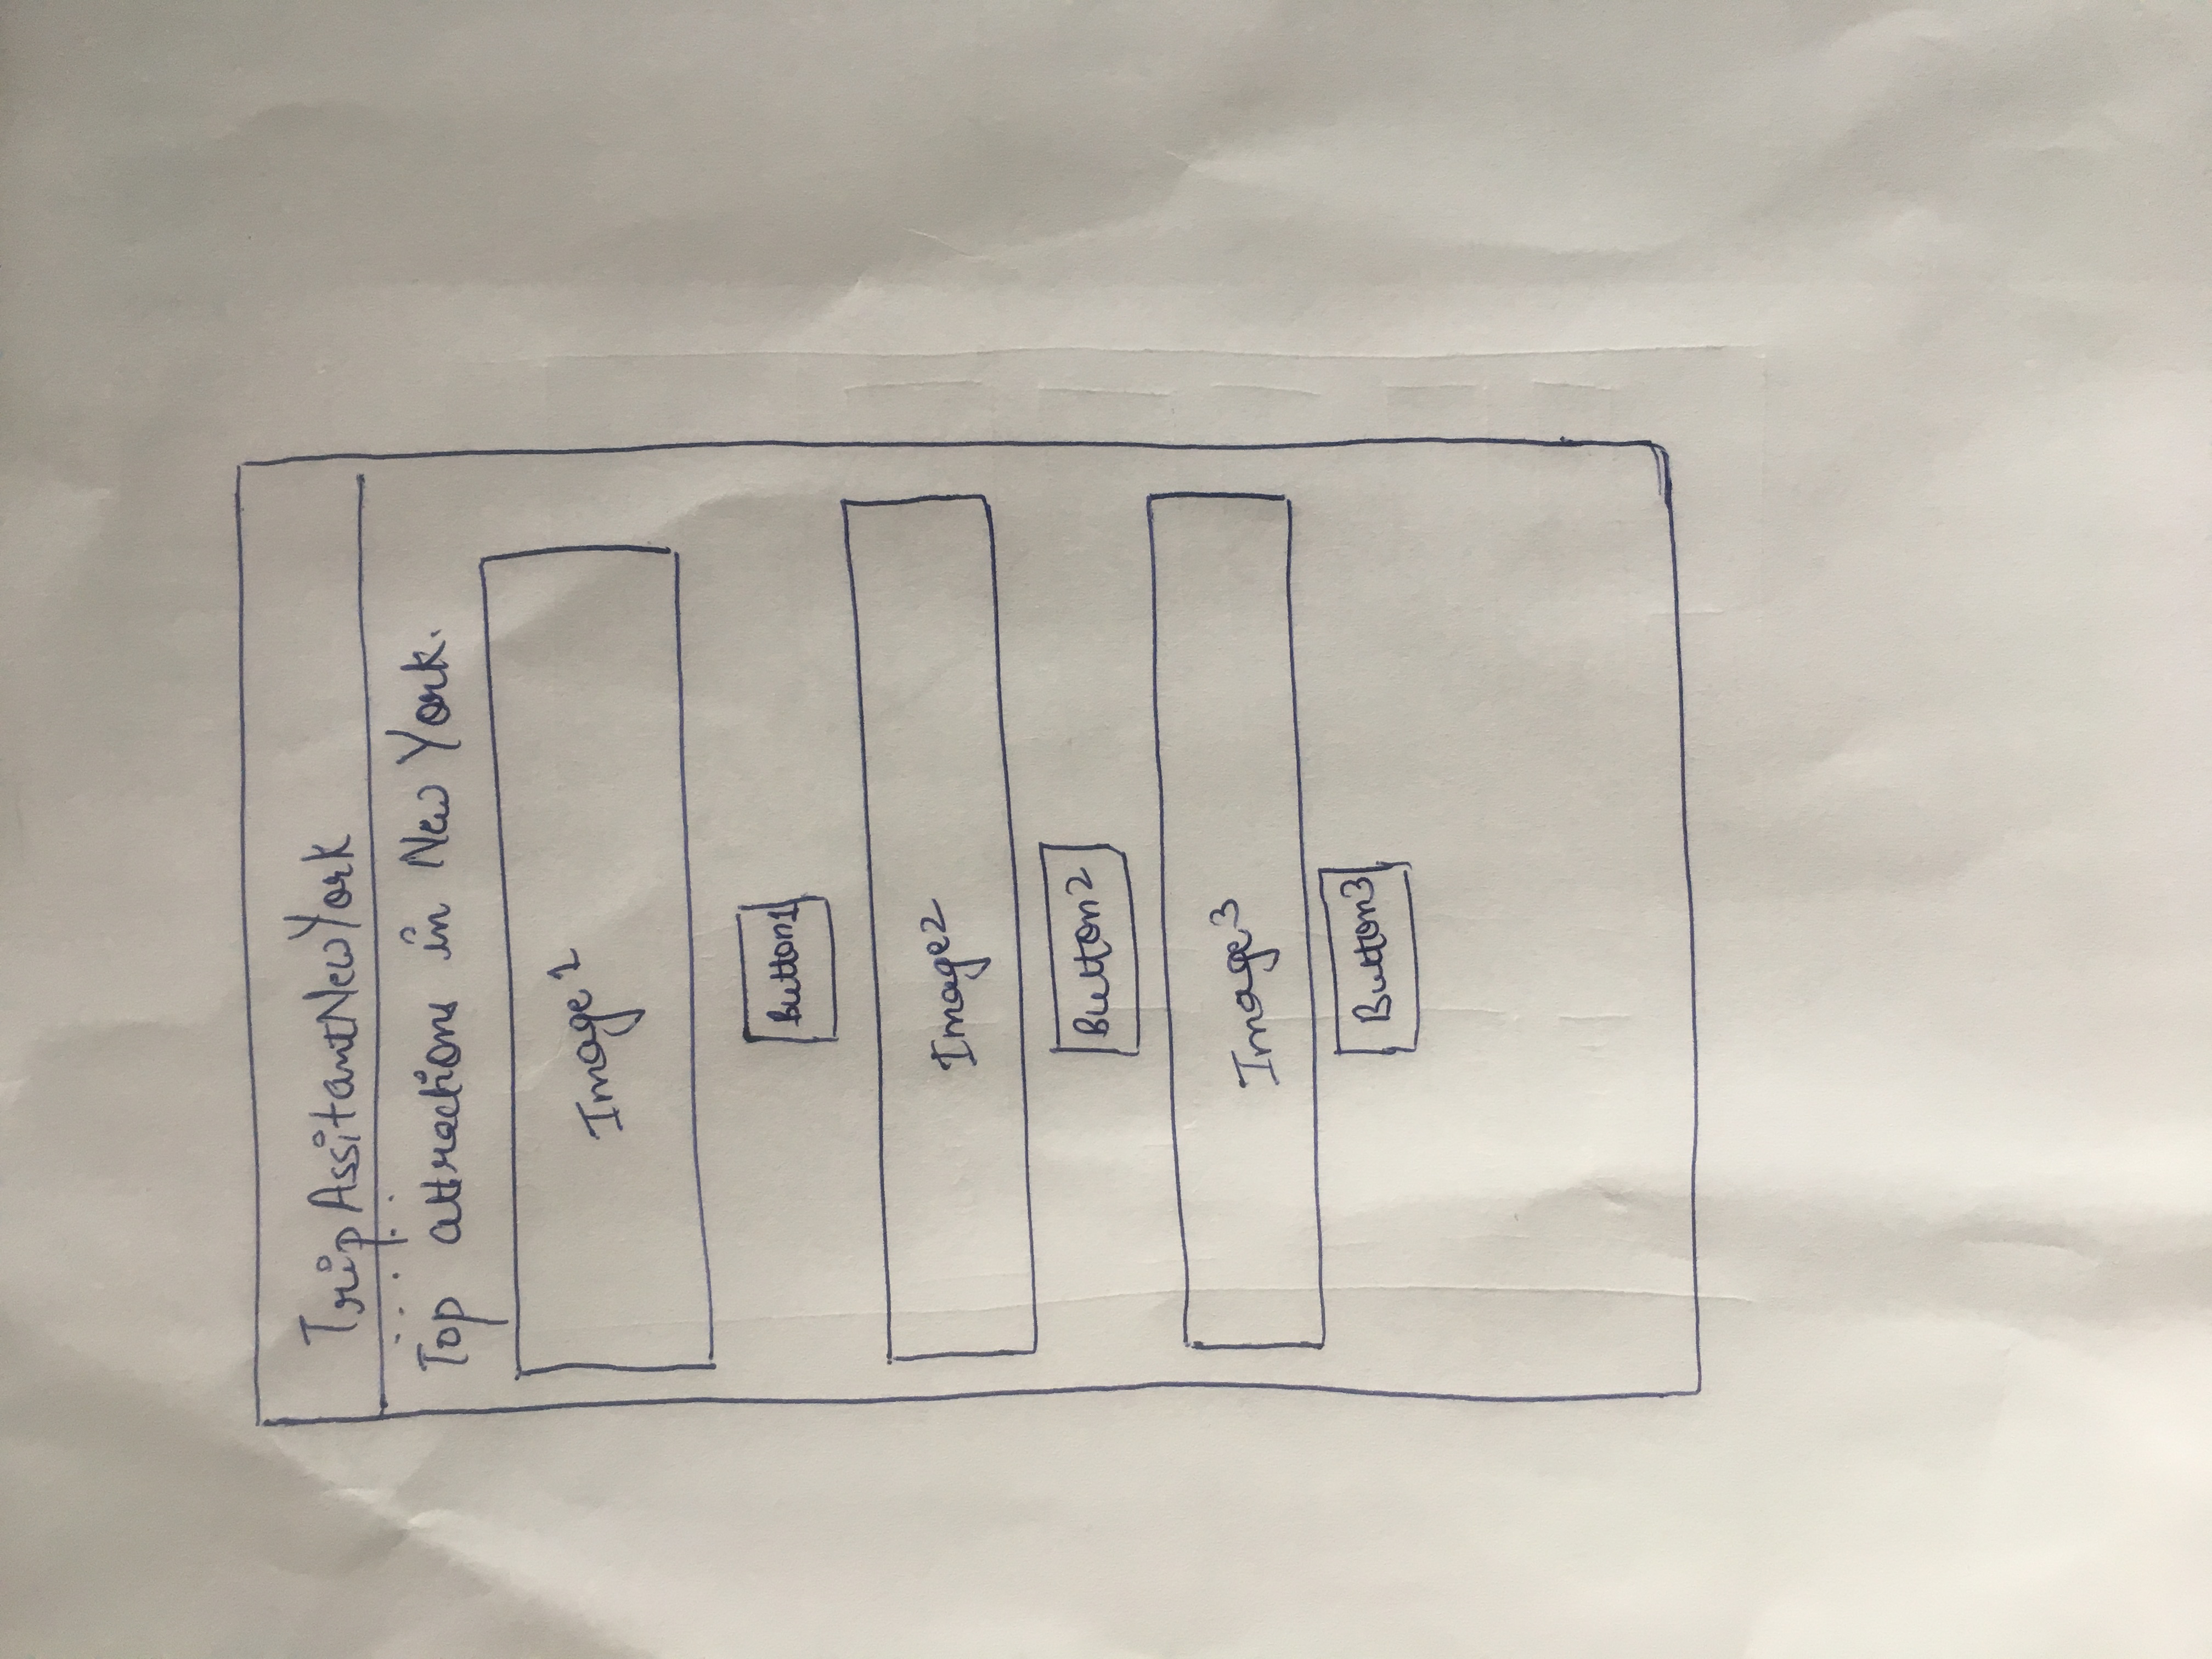 TripAssitantNewYork
Top attractions in New York.
Image 1
Button1
Image2
Button2
Image3
Button3